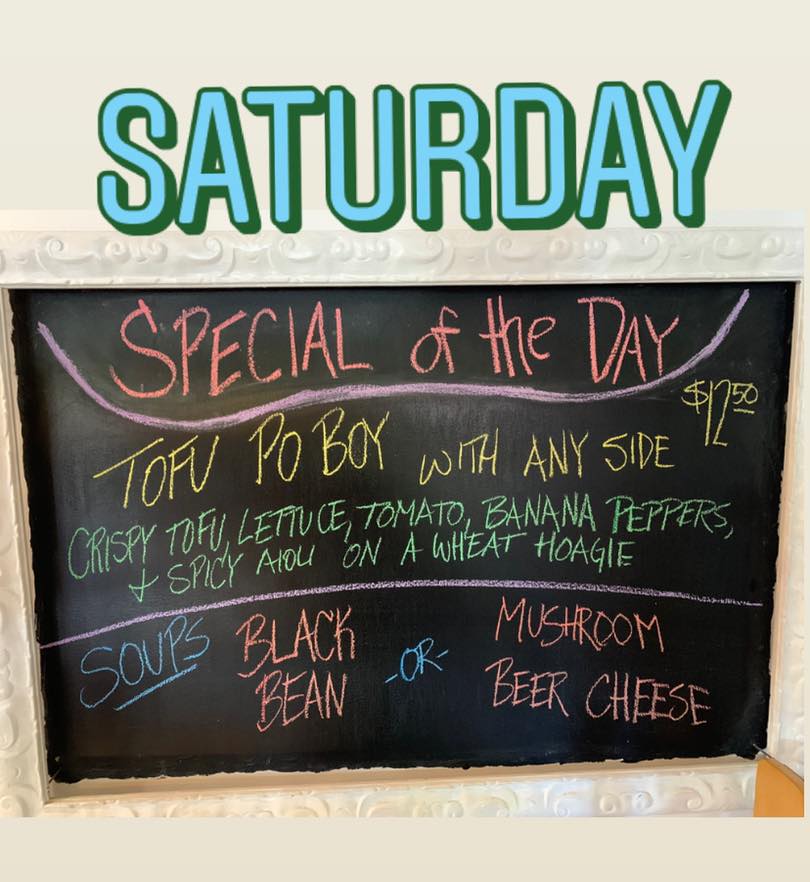 SATURDAY
SPECIAL of the DAY
$12.50
TOFU PO BOY WITH ANY SIDE
CRISPY TOFU, LETTUCE, TOMATO, BANANA PEPPERS,
+ SPICY AIOLI ON A WHEAT HOAGIE
SOUPS BLACK BEAN -OR- MUSHROOM BEER CHEESE